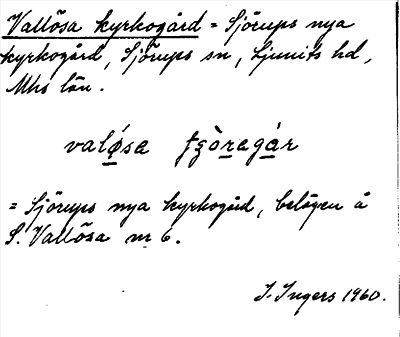 Vallösa kyrkogård = Sjörups nya
kyrkogård, Sjörups sn, Ljunits hd,
Mhs län.
valǿsa ʈʂòragár
= Sjörups nya kyrkogård, belägen å
S. Vallösa nr 6.
I. Ingers 1960.